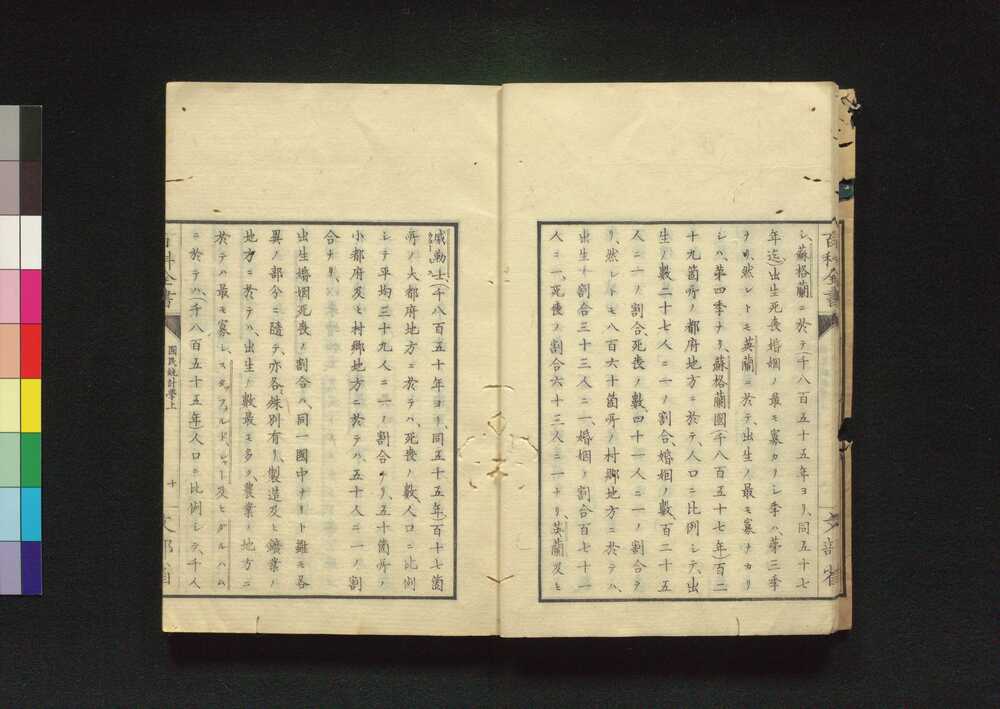 シ、蘇格蘭ニ於テ(千八百五十五年ヨリ、同五十七
年迄)出生死喪婚姻ノ最モ寡カリシ季ハ、第三季
ナリ、然レトモ英蘭ニ於テ、出生ノ最モ寡ナカリ
シハ、第四季ナリ、蘇格蘭國(千八百五十七年)百二
十九箇所ノ都府地方ニ於テ、人口ニ比例シテ、出
生ノ數二十七人ニ一ノ割合、婚姻ノ數、百二十五
人ニ一ノ割合、死喪ノ數、四十一人ニ一ノ割合ナ
リ、然レトモ八百六十箇所ノ村鄕地方ニ於テハ、
出生ノ割合三十三人ニ一、婚姻ノ割合百七十一
人ニ一、死喪ノ割合六十三人ニ一ナリ、英蘭及ヒ
百科全書
文部省
威勒士、(千八百五十年ヨリ、同五十五年)百十七箇
所ノ大都府地方ニ於テハ、死喪ノ數、人口ニ比例
シテ平均三十九人ニ一ノ割合ナリ、五十箇所ノ
小都府及ヒ村鄕地方ニ於テハ、五十人ニ一ノ割
合ナリ、
出生婚姻死喪ノ割合ハ、同一國中ナリト雖モ各
異ノ部分ニ隨テ、亦各殊別有リ、製造及ヒ鑛業ノ
地方ニ於テハ、出生ノ數最モ多ク、農業ノ地方ニ
於テハ最モ寡シ、スタッフルド、シャー及ヒダルハム
ニ於テハ、(千八百五十五年)人口ニ比例シテ、千人
百科全書
國民統計學上
十
文部省